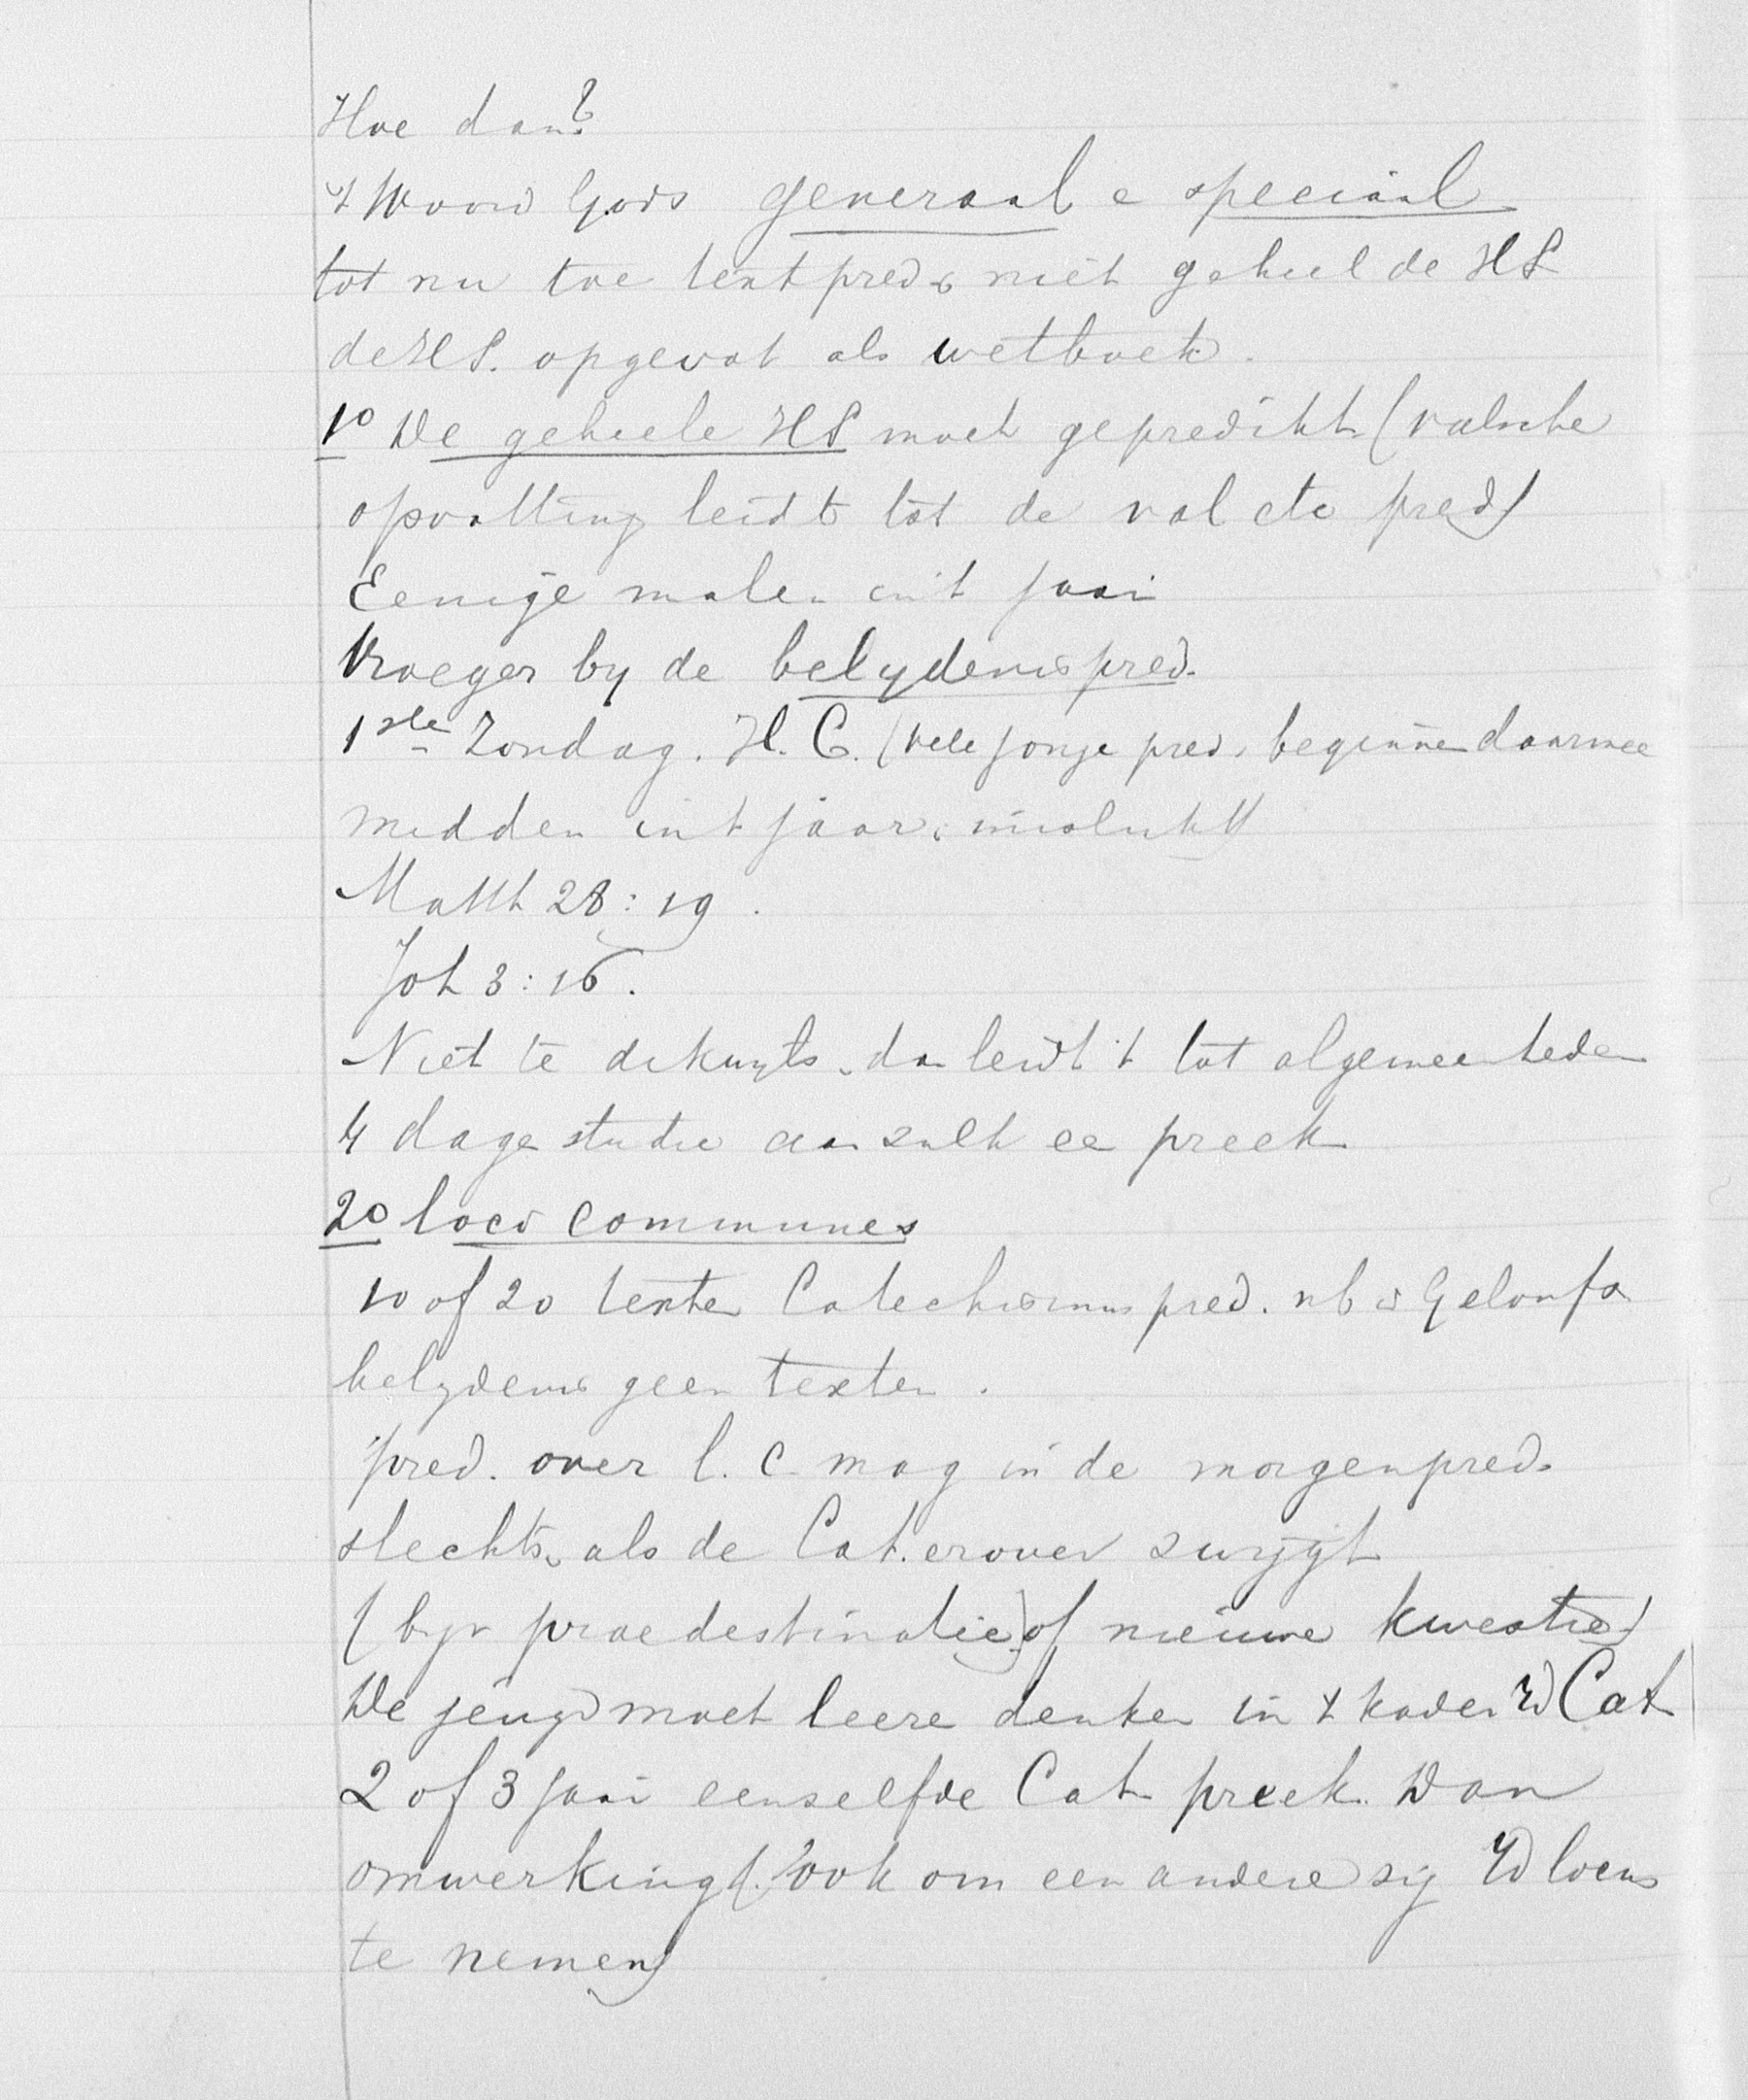 Hoe dan?
't Woord Gods generaal e speciaal
tot nu toe textpred. niet geheel de HS
de HS. opgevat als wetboek.
1o De geheele HS moet gepredikt (valsche
opvatting leidt tot de val etc pred)
Eenige malen in 't jaar
Vroeger by de belydenispred.
1ste Zondag. H. C. (vele jonge pred. beginne daarmee
midden in 't jaar, mislukt)
Matth 28:19.
Joh 3:16.
Niet te dikwyls, da leidt 't tot algemeenheden
4 dage studie aan zulk ee preek
2o loci communes
10 of 20 texte Catechismuspred. nb is Geloofs
belydenis geen texten.
pred. over l. c. mag in de morgenpred.
slechts, als de Cat. erover zwijgt
(byv praedestinatie) of nieuwe kwestie)
De jeugd moet leere denken in 't kader vd Cat
2 of 3 jaar eenzelfde Cat preek. Dan
omwerking (ook om een andere zij vd locus
te nemen)